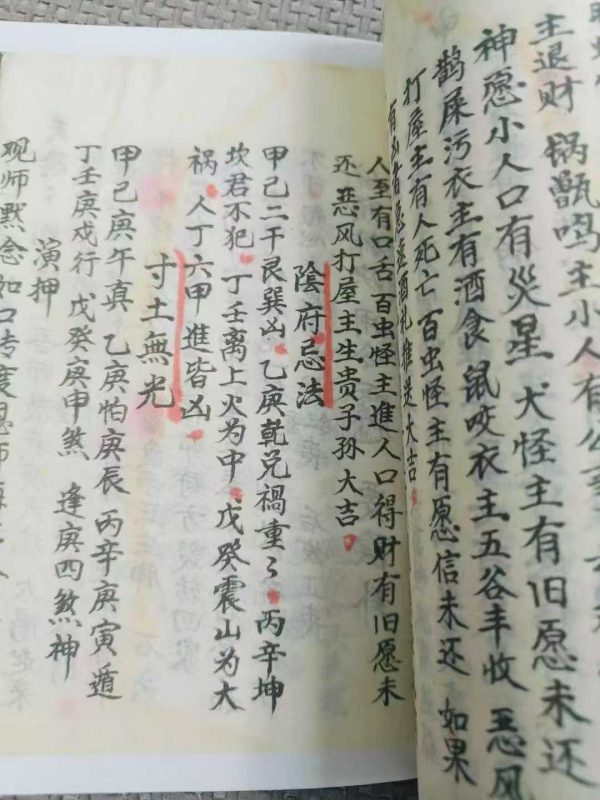 主退财 锅甑鸣主小人有公
神愿小人口有災星 犬怪主有旧愿未还
鹊屎污衣主有酒食鼠咬衣主五谷丰收 恶风
打屋主有人死亡百虫怪主有愿信未还 如果
有凶者愿速酒礼推送大吉
人至有口舌百虫怪主進人口得财有旧愿未
还 恶风打屋主生贵子孙大吉
陰府忌法
甲己二干艮巽凶 乙庚乾兑禍重々 丙辛坤
坎君不犯 丁壬離上火为中 戊癸震山为大
祸 人丁六甲進皆凶
寸土無光
甲己庚午真 乙庚怕庚辰 丙辛庚寅遁
丁壬庚戍行 戊癸庚申煞 逢庚四煞神
演押
观师默念如口传度